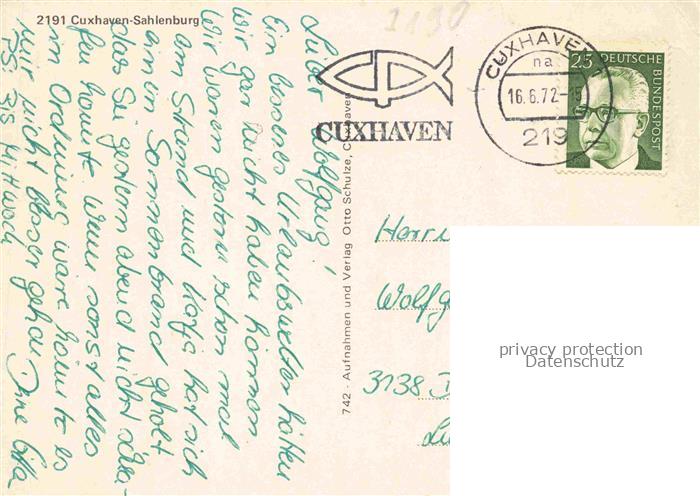 2191 Cuxhaven-Sahlenburg
1190
Lieber Wolfgang!
Ein besseres Urlaubswetter hätten
wir gar nicht haben können
Wir waren gestern schon mal
am Strand und Katja hat sich
einen Sonnenbrand geholt
das Sie gestern abend nicht schla-
fen konnte. Wenn sonst alles
in Ordnung wäre könnte es
mir nicht besser gehen. Ihre
PS: Bis Mittwoch
742 - Aufnahmen und Verlag Otto Schulze, Cuxhaven
CUXHAVEN
CUXHAVEN 1
na
16.6.72-15
219
25 DEUTSCHE
BUNDESPOST
Herrn
Wolfg
3138 D
privacy protection
Datenschutz